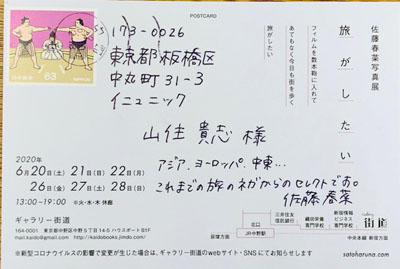 POSTCARD
佐藤春菜写真展
旅がしたい
フィルムを数本鞄に入れて
あてもなく今日も街を歩く
旅がしたい
63
NIPPON
173-0026
東京都板橋区
中丸町31-3
イニュニック
山住貴志 様
アジア、ヨーロッパ、中東…
これまでの旅のネガからのセレクトです。
佐藤春菜
2020年
6月20日(土) 21日(日) 22日(月)
26日(金) 27日(土) 28日(日)
13:00-19:00 ※火・水・木 休廊
ギャラリー街道
164-0001 東京都中野区中野5丁目14-5 ハウスポートB1F
mail.kaido@gmail.com http://kaidobooks.jimdo.com/
荻窪方面
北口
JR中野駅
三井住友
信託銀行
織田栄養
専門学校
新宿情報
ビジネス
専門学校
gallery
街道
中央本線 新宿方面
※新型コロナウイルスの影響で変更が生じた場合は、ギャラリー街道のwebサイト・SNSにてお知らせします
satoharuna.com